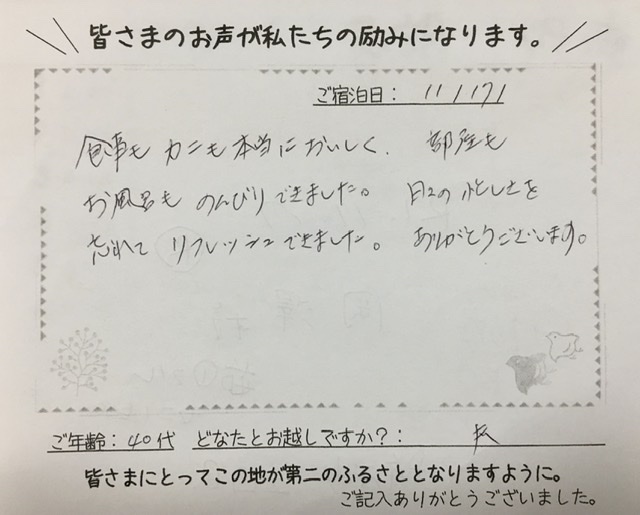 皆さまのお声が私たちの励みになります。
ご宿泊日： 11/17/
食事も カニも 本当に おいしく、 部屋も
お風呂も のんびりできました。 日々の 忙しさを
忘れて リフレッシュできました。 ありがとうございます。
ご年齢：40代 どなたとお越しですか？：
皆さまにとってこの地が第二のふるさととなりますように。
ご記入ありがとうございました。